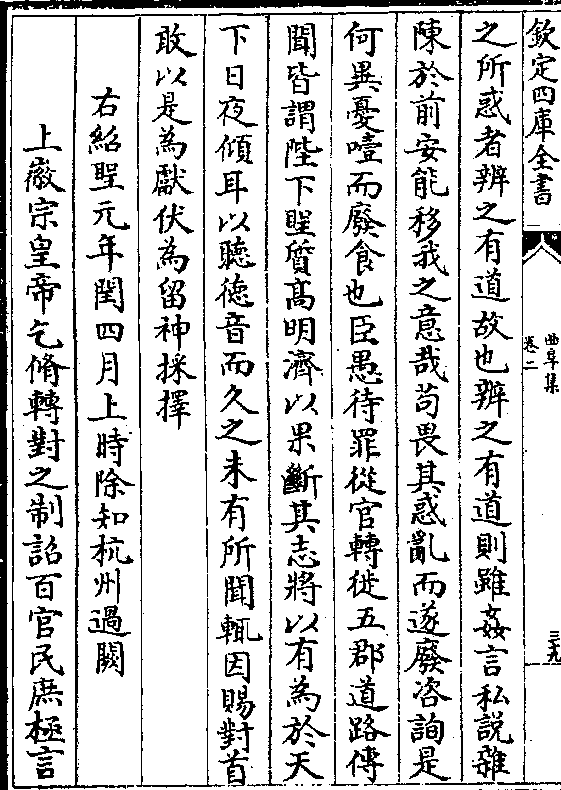 欽定四庫全書
曲阜集
卷二
三十九
之所惑者辨之有道故也辨之有道則雖姦言私說雜
陳於前安能移我之意哉苟畏其惑亂而遂廢咨詢是
何異憂噎而廢食也臣愚待罪從官轉徙五郡道路傳
聞皆謂陛下聖質髙明濟以果斷其志將以有為於天
下日夜傾耳以聽徳音而久之未有所聞輒因賜對首
敢以是為獻伏為留神採擇
右紹聖元年閏四月上時除知杭州過闕
上徽宗皇帝乞脩轉對之制詔百官民庶極言